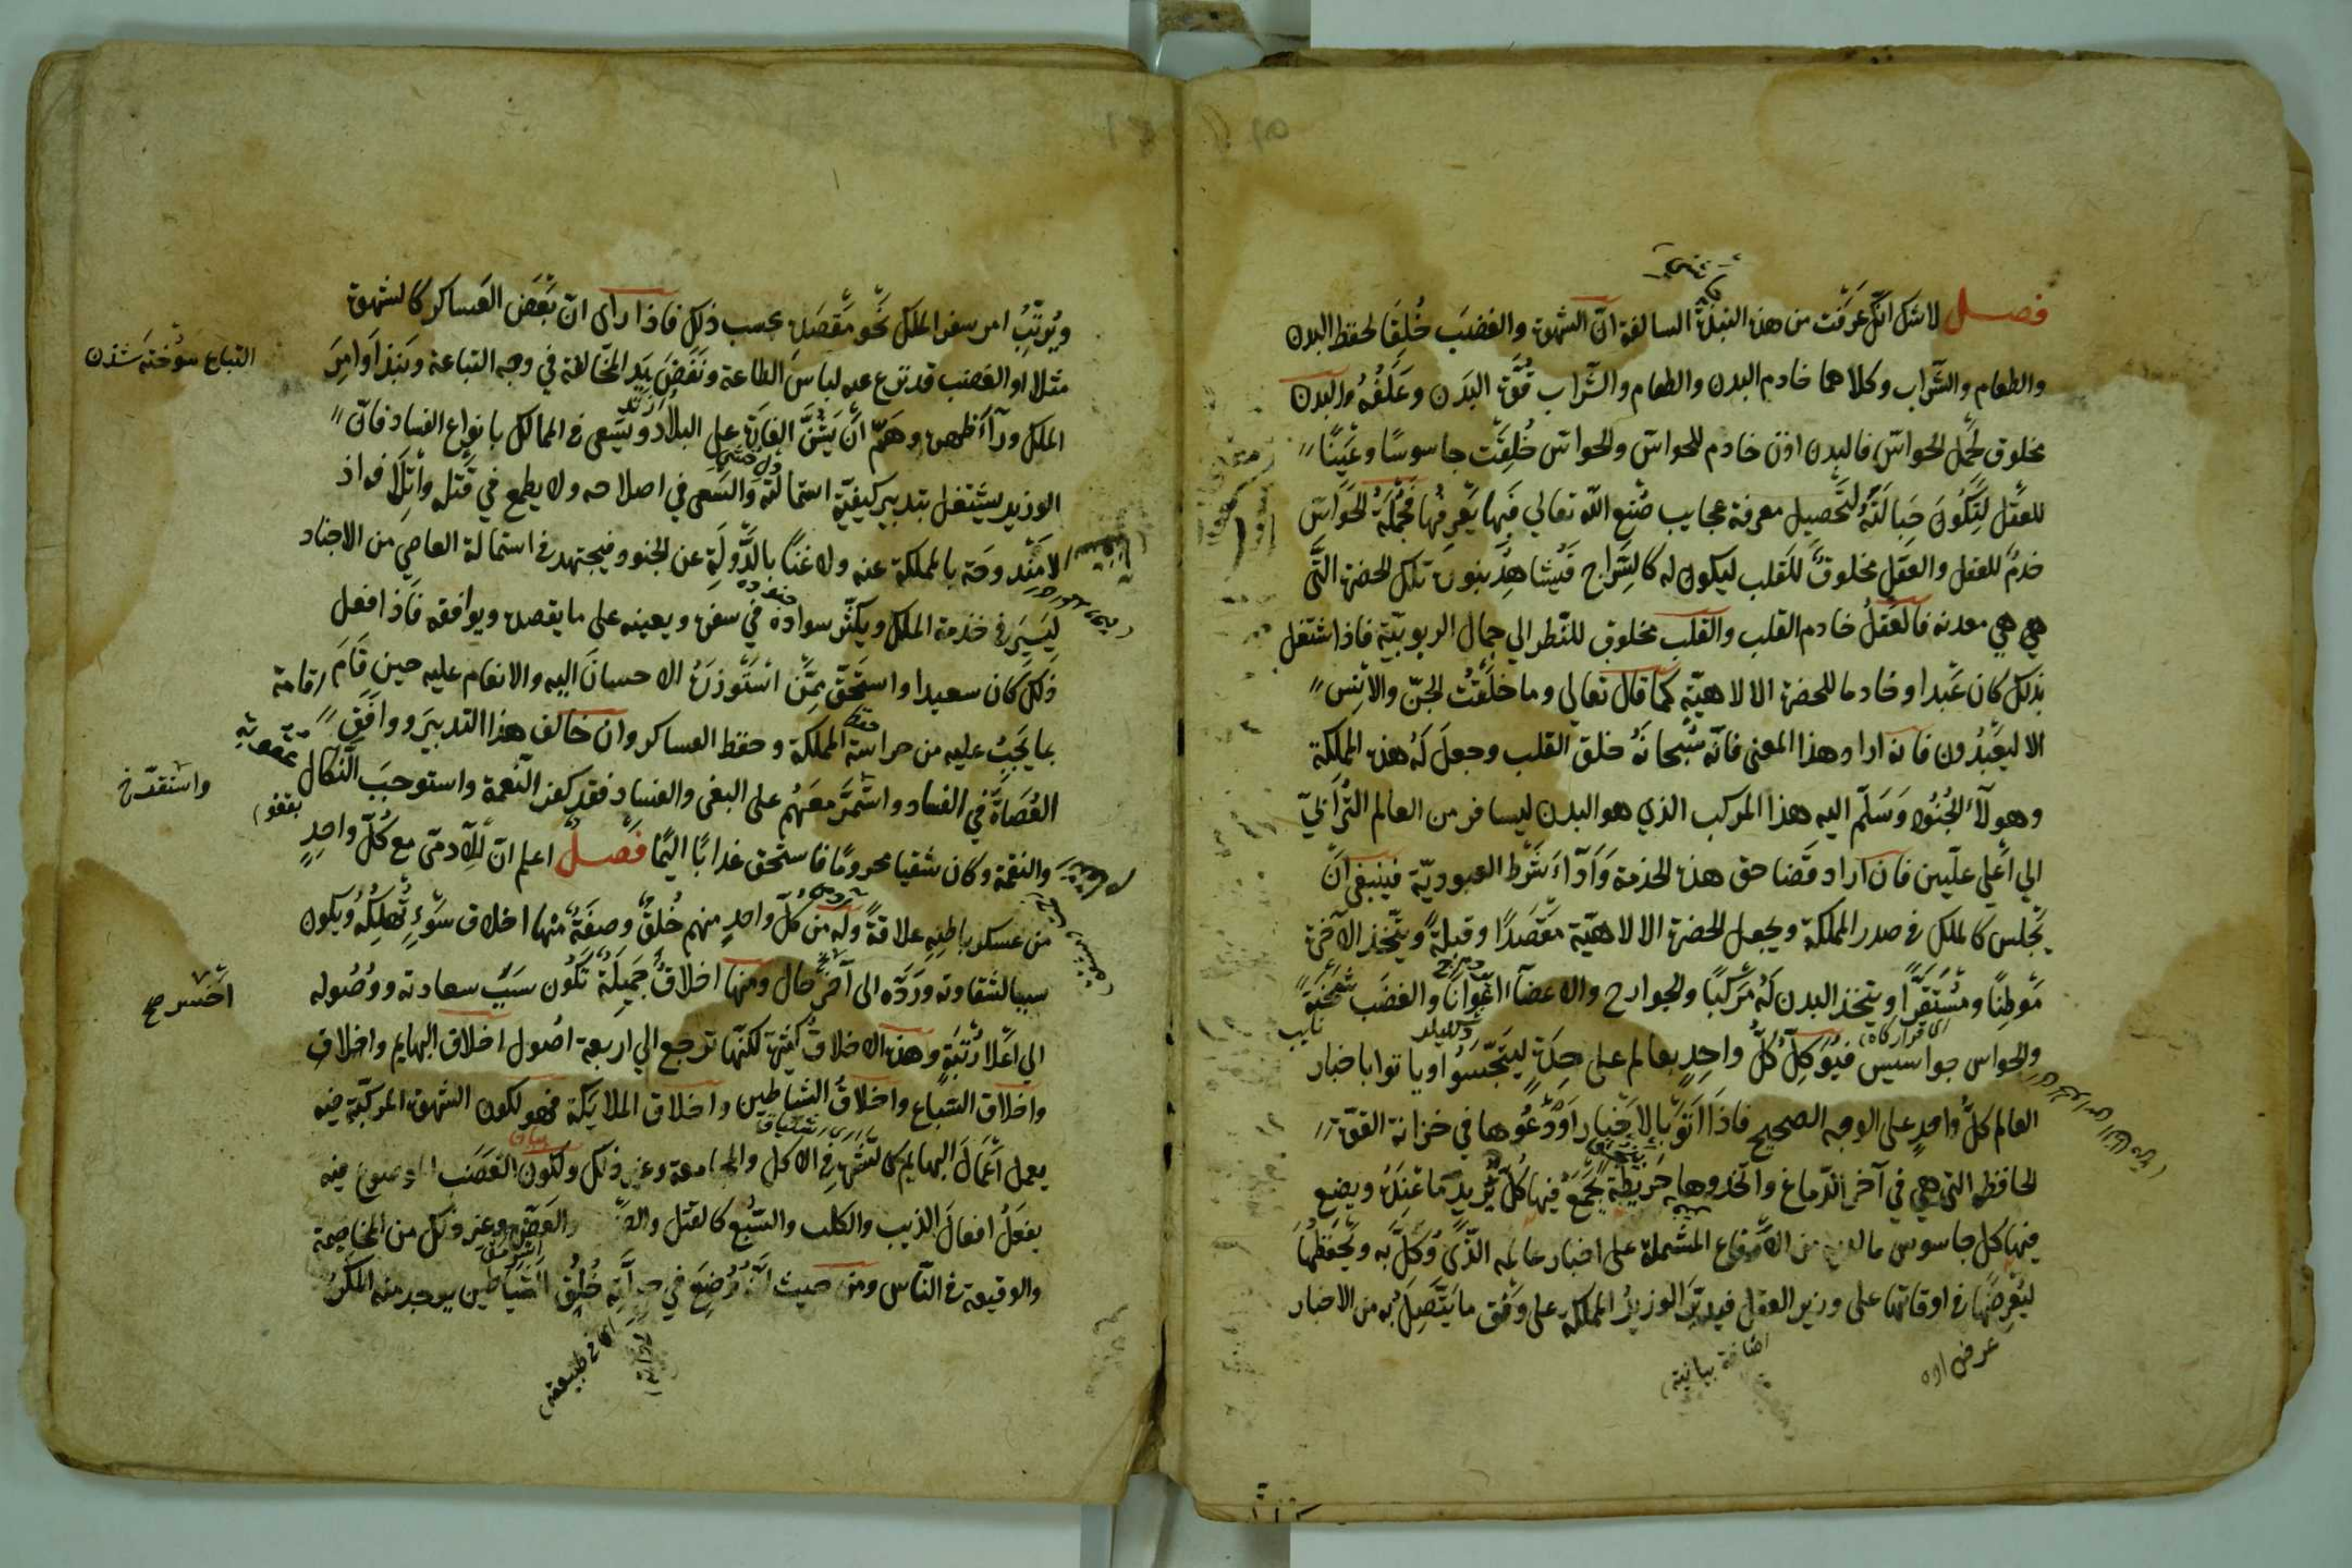 فصل لا شك انك عرفت من هذه النبذة السالفة ان الشهوة والغضب خلقا لحفظ البدن
والطعام والشراب وكلاهما خادم البدن والطعام والشراب قوة البدن وعلفه والبدن
مخلوق لحمل الحواس فالبدن اذن خادم للحواس والحواس خلقت جاسوسا وعينا
للعقل لتكون حبالته لتحصيل معرفة عجايب صنع الله تعالي فبها يعرفها فجملة الحواس
خدم للعقل والعقل مخلوق للقلب ليكون له كالسراج فيشاهد بنوره تلك الحضرة التي
هي هي معدنه فالعقل خادم القلب والقلب مخلوق للنظر الي جمال الربوبية فاذا اشتغل
بذلك كان عبدا وخادما للحضرة الالاهية كما قال تعالى وما خلقت الجن والانس
الا ليعبدون فانه اراد هذا المعنى فانه سبحانه خلق القلب وجعل له هذه المملكة
وهولآء الجنود وسلم اليه هذا المركب الذي هو البدن ليسافر من العالم الترابي
الي اعلي عليين فان اراد قضا حق هذه الخدمة وادآء شرط العبودية فينبغي ان
يجلس كالملك في صدر المملكة ويجعل الحضرة الالاهية مقصدا وقبلة ويتخذ الآخرة
موطنا ومستقرا ويتخذ البدن له مركبا والجوارح والاعضآ اعوانا والغضب شحنة
والحواس جواسيس فيوكل كل واحد بعالم على حدة ليتجسسوا وياتوا باخبار
العالم كل واحد على الوجه الصحيح فاذا اتوا بالاخبار اودعوها في خزانة القوة
الحافظة التي هي في آخر الدماغ واتخذوها خريطة يجمع فيها كل بريد ما عنده ويضع
فيها كل جاسوس ما لديه من الرقاع المشتملة على اخبار عالمه الذي وكل به ويحفظها
ليعرضها في اوقاتها على وزير العقل فيدبر الوزير المملكة على وفق ما يتصل به من الاخبار
اى قرار كاه
نايب
عرض اوه
اضافة بيانية
ويرتب امر سفر الملك نحو مقصده بحسب ذلك فاذا راى ان بعض العساكر كالشهوة
مثلا او الغضب قد نزع عنه لباس الطاعة ونفض يد المخالفة في وجه التباعة ونبذ اوامر
الملك ورآء ظهره وهم ان يشن الغارة على البلاد ويسعى في الممالك بانواع الفساد فان
الوزير يشتغل بتدبير كيفية استمالته والسعى في اصلاحه ولا يطمع في قتله واتلافه اذ
لا مندوحة بالمملكة عنه ولا غنا بالدولة عن الجنود فيجتهد في استمالة العاصي من الاجناد
ليسير في خدمة الملك ويكثر سواده في سفره ويعينه على ما يقصده ويوافقه فاذا فعل
ذلك كان سعيدا واستحق ممن استوزره الاحسان اليه والانعام عليه حين قام اقامة
بما يجب عليه من حراسة المملكة وحفظ العساكر وان خالف هذا التدبير ووافق
العصاة في الفساد واستمر معهم على البغى والفساد فقد كفر النعمة واستوجب النكال
والنقمة وكان شقيا محروما فاستحق عذابا اليما فصل اعلم ان للآدمي مع كل واحد
من عسكر باطنه علاقة وله من كل واحد منهم خلق وصفة منها اخلاق سوء تهلكه ويكون
سببا لشقاوته ورده الى آخر حال ومنها اخلاق جميلة تكون سبب سعادته ووصوله
الى اعلا رتبة وهذه الاخلاق كثيرة لكنها ترجع الي اربعة اصول اخلاق البهايم واخلاق
واخلاق السباع واخلاق الشياطين واخلاق الملايكة فهو لكون الشهوة المركبة فيه
يعمل اعمال البهايم كالشره في الاكل والمجامعة وغير ذلك ولكون الغضب الموضوع فيه
يفعل افعال الذيب والكلب والسبع كالقتل والضرب والعض وغير ذلك من المخاصمة
والوقيعة في الناس ومن حيث انه وضع في جبلته خلق الشياطين يوجد منه المكر
التباع سوخته شدن
عقوبة
واستقد خ
اخس صح
اى في طبيعته